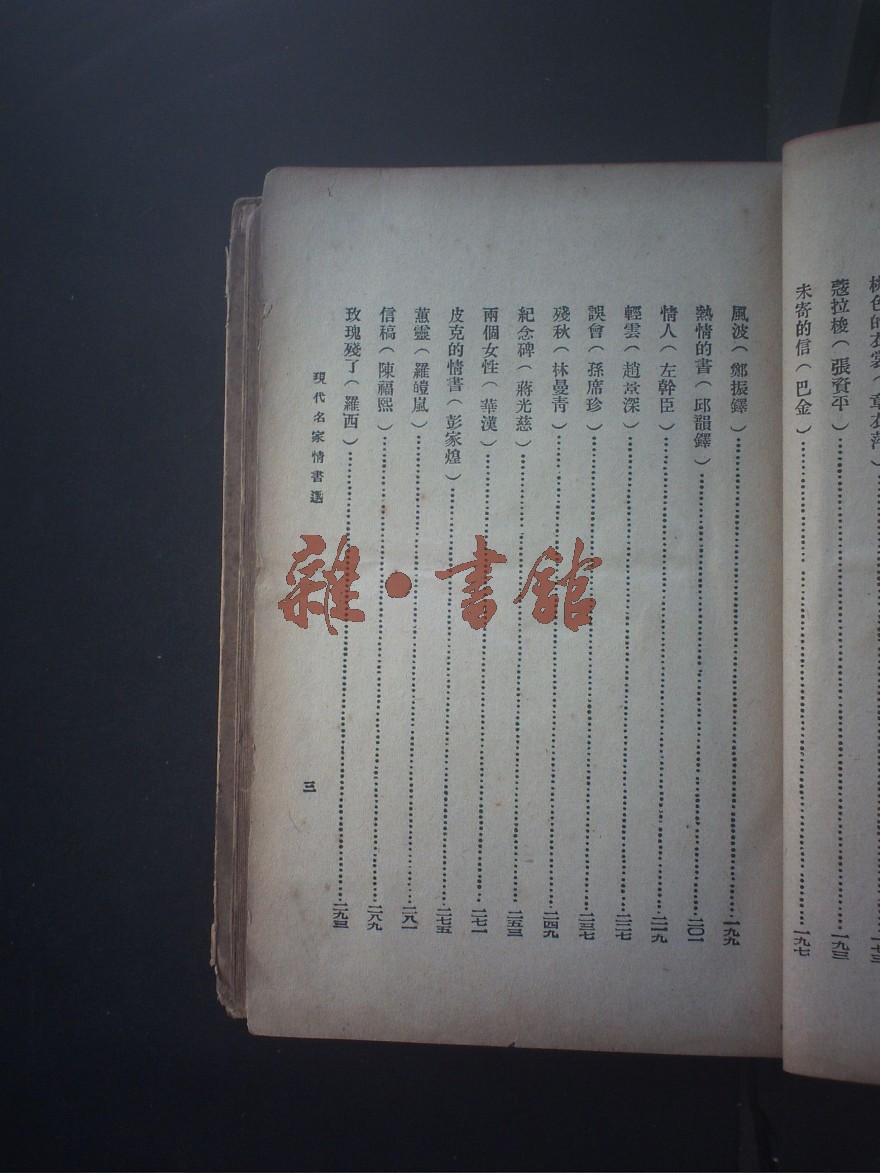 桃色的衣裳（章衣萍）……一七三
蔻拉梭（張資平）……一九三
未寄的信（巴金）……一九七
風波（鄭振鐸）……一九九
熱情的書（邱韻鐸）……二〇一
情人（左幹臣）……二一九
輕雲（趙景深）……二二七
誤會（孫席珍）……二三七
殘秋（林曼青）……二四九
紀念碑（蔣光慈）……二五三
兩個女性（華漢）……二七一
皮克的情書（彭家煌）……二七五
蕙靈（羅皚嵐）……二八一
信稿（陳福熙）……二八九
玫瑰殘了（羅西）……二九三
現代名家情書選
三
雜·書館